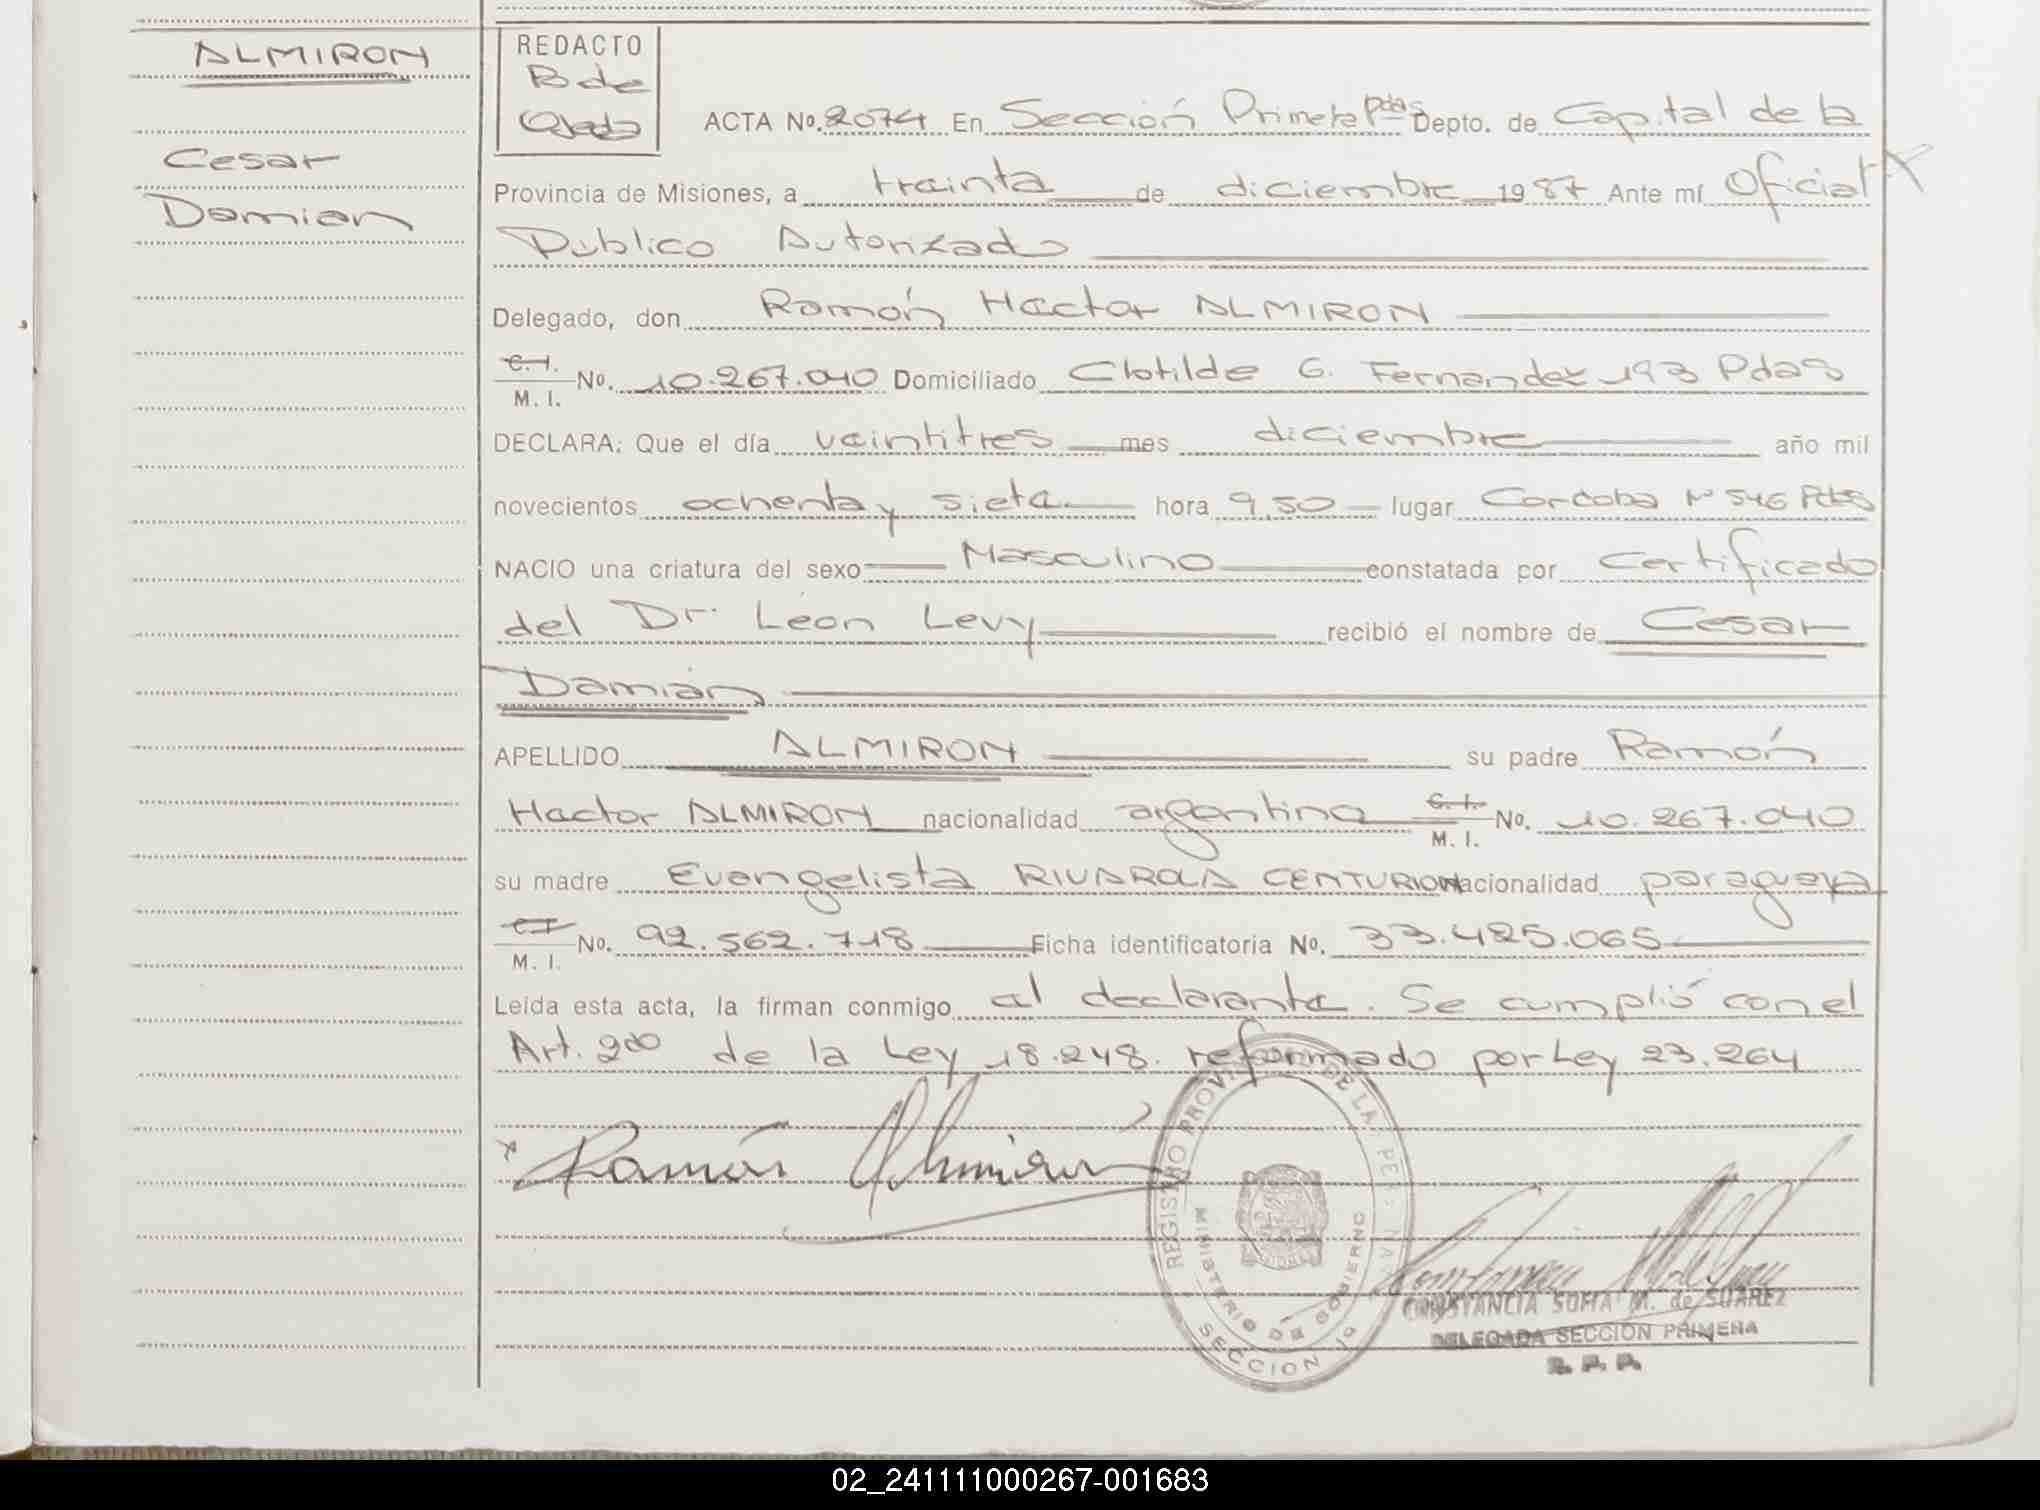 ALMIRON
Cesar
Damian
REDACTO
B de
Ojeda
ACTA No. 2074 En Sección Primera Pdas Depto. de Capital de la
Provincia de Misiones, a treinta de diciembre 1987 Ante mí Oficial
Publico Autorizado
Delegado, don Ramón Hector ALMIRON
C. I. No. 10.267.040 Domiciliado Clotilde G. Fernandez 193 Pdas
M. I.
DECLARA: Que el día veintitres mes diciembre año mil
novecientos ochenta y siete hora 9,50 lugar Cordoba Nº 546 Pdas
NACIO una criatura del sexo Masculino constatada por Certificado
del Dr. León Levy recibió el nombre de Cesar
Damián
APELLIDO ALMIRON su padre Ramón
Hector ALMIRON nacionalidad argentina C. I. No. 10.267.040
M. I.
su madre Evangelista RIVAROLA CENTURION nacionalidad paraguaya
C I No. 92.562.718 Ficha identificatoria No. 33.425.065
M. I.
Leída esta acta, la firman conmigo el declarante. Se cumplió con el
Art. 2do de la Ley 18.248. reformado por Ley 23.264
Ramón Almirón
REGISTRO PROVINCIAL DE LAS PERS
MINISTERIO DE GOBIERNO
SECCION 1a
CONSTANCIA SOFIA M. de SUAREZ
DELEGADA SECCION PRIMERA
R. P. P.
02_241111000267-001683